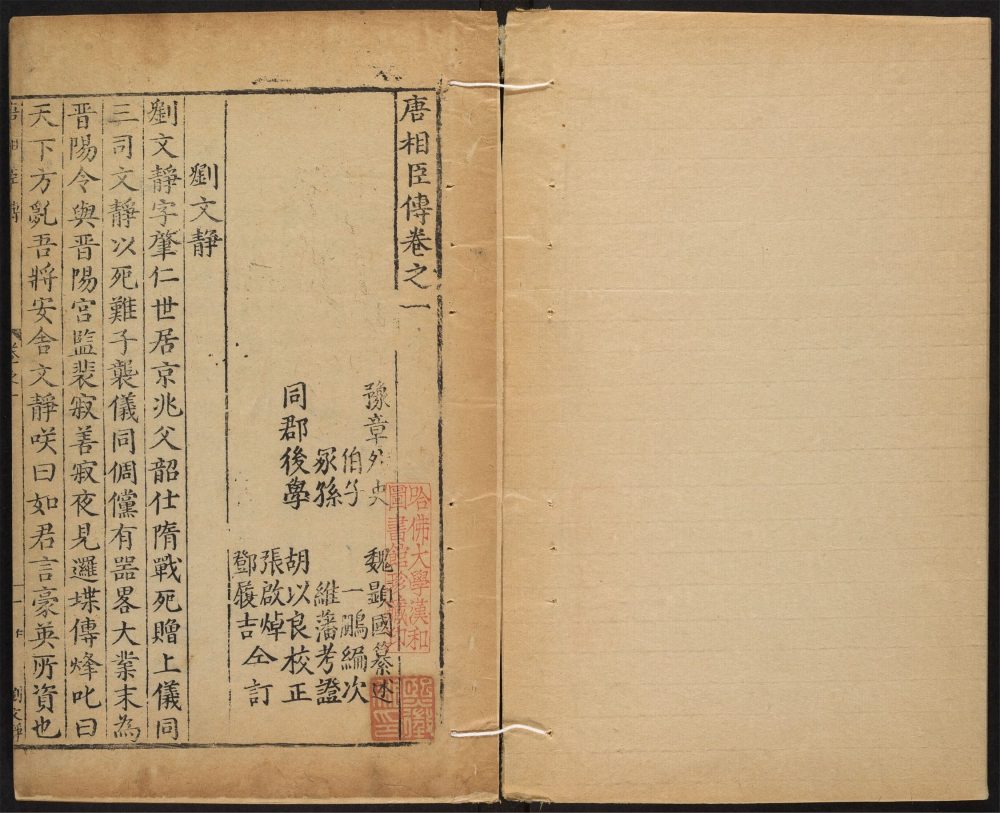 唐相臣傳卷之一
豫章外史 魏顯國纂述
伯子 一鵬編次
冢孫 維藩考證
同郡後學 胡以良校正
張啟焯
鄧履吉仝訂
劉文靜
劉文靜字肇仁世居京兆父韶仕隋戰死贈上儀同
三司文靜以死難子襲儀同倜儻有器畧大業末為
晋陽令與晋陽宮監裴寂善寂夜見邏堞傳烽叱曰
天下方亂吾將安舍文靜咲曰如君言豪英所資也
哈佛大學漢和
圖書館珍藏印